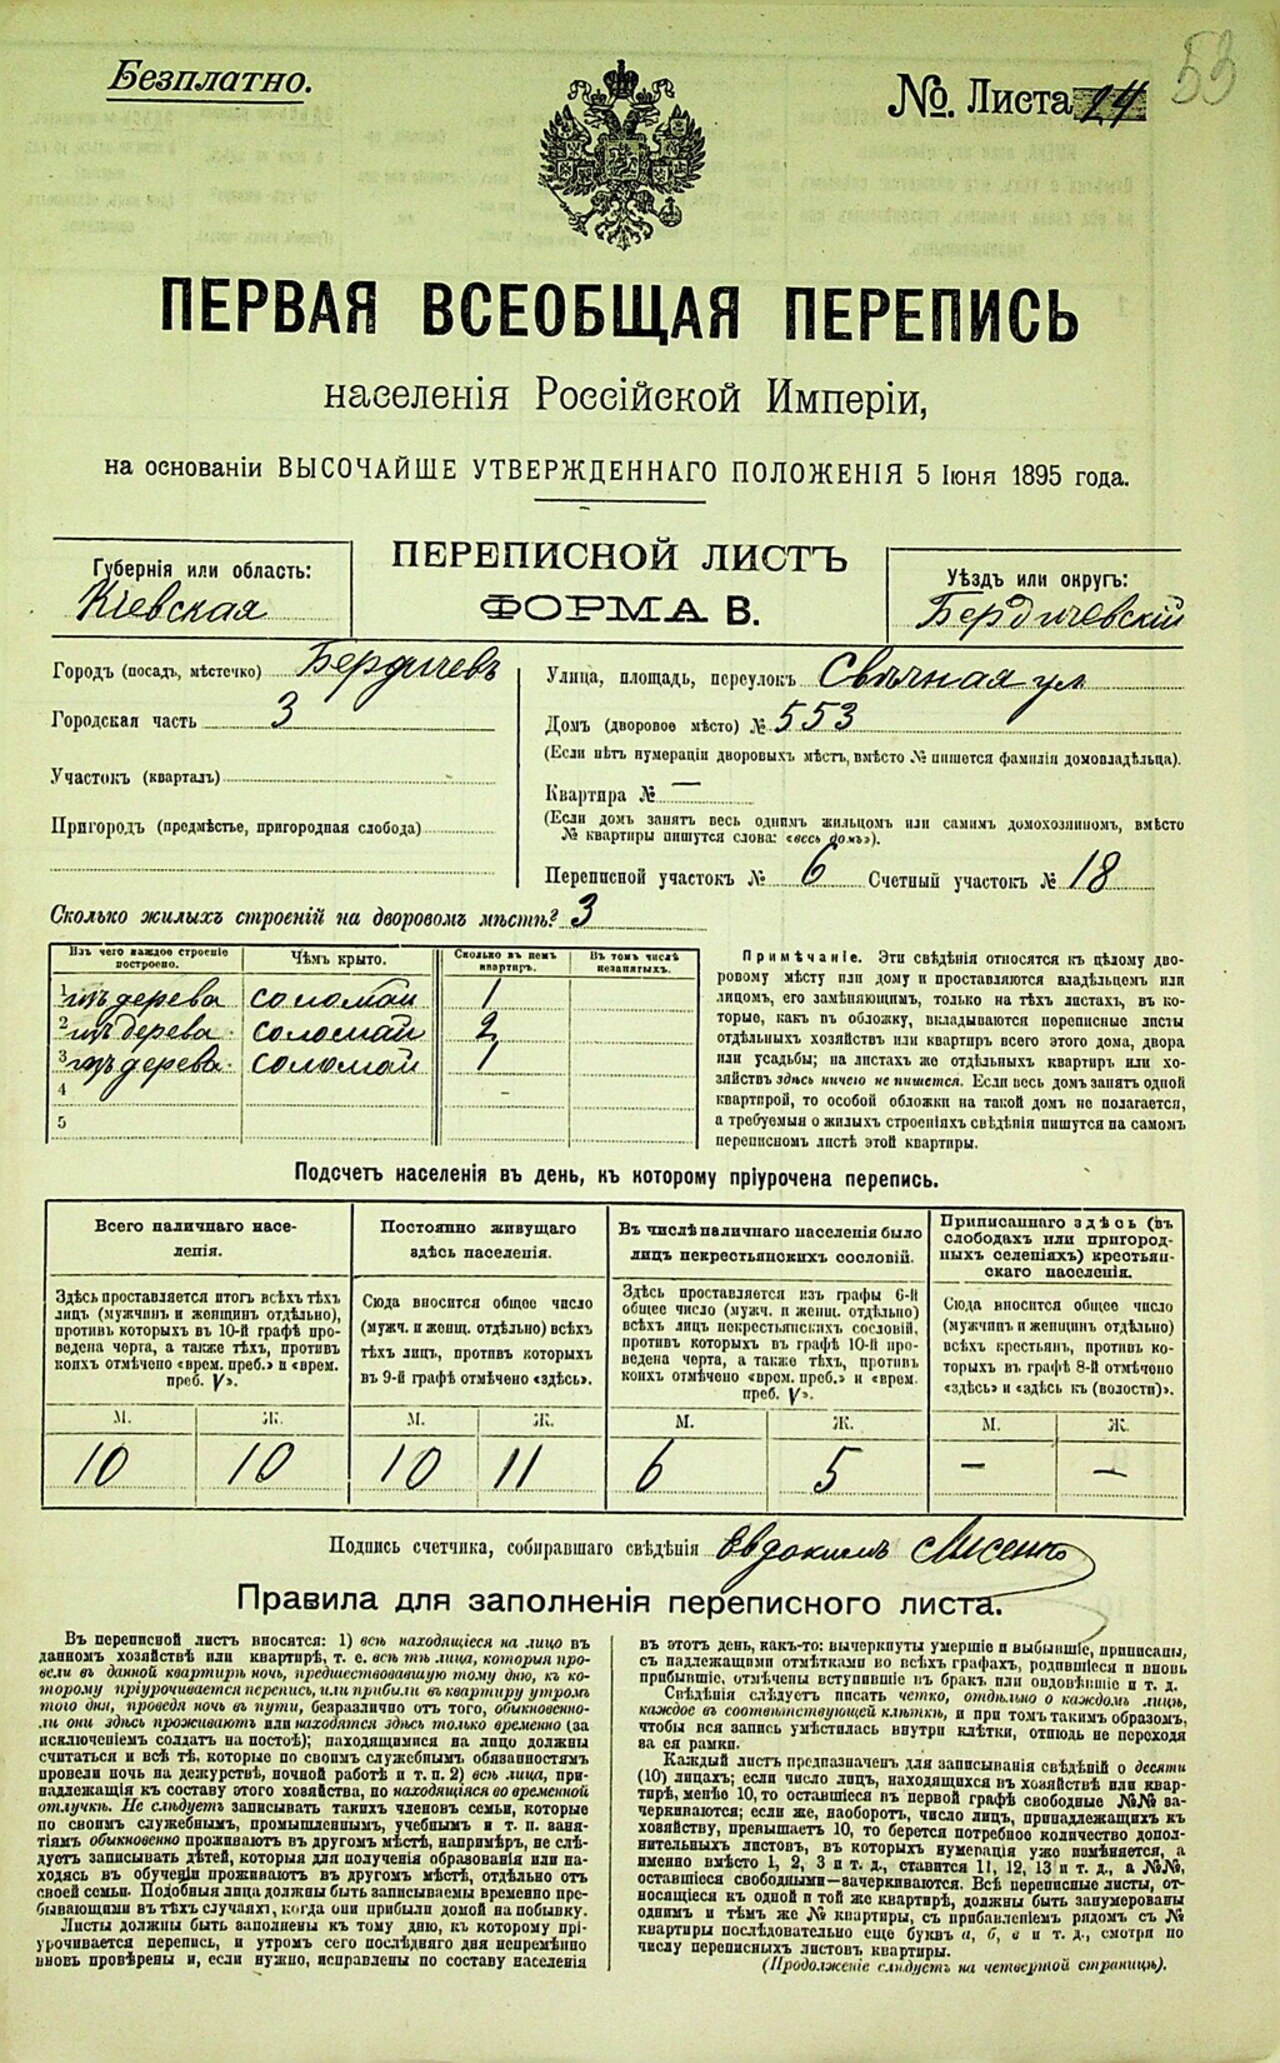 Безплатно.
№. Листа 24
53
ПЕРВАЯ ВСЕОБЩАЯ ПЕРЕПИСЬ
населенія Россійской Имперіи,
на основаніи ВЫСОЧАЙШЕ УТВЕРЖДЕННАГО ПОЛОЖЕНІЯ 5 Іюня 1895 года.
ПЕРЕПИСНОЙ ЛИСТЪ
ФОРМА В.
Губернія или область:
Кіевская
Уѣздъ или округъ:
Бердичевскій
Городъ (посадъ, мѣстечко) Бердичевъ
Городская часть 3
Участокъ (кварталъ)
Пригородъ (предмѣстье, пригородная слобода)
Улица, площадь, переулокъ Свѣчная ул
Домъ (дворовое мѣсто) № 553
(Если нѣтъ нумераціи дворовыхъ мѣстъ, вмѣсто № пишется фамилія домовладѣльца).
Квартира № —
(Если домъ занятъ весь однимъ жильцомъ или самимъ домохозяиномъ, вмѣсто
№ квартиры пишутся слова: «весь домъ»).
Переписной участокъ № 6 Счетный участокъ № 18
Сколько жилыхъ строеній на дворовомъ мѣстѣ? 3
Изъ чего каждое строеніе построено.
Чѣмъ крыто.
Сколько въ немъ квартиръ.
Въ томъ числѣ незанятыхъ.
1 изъ дерева соломой 1
2 изъ дерева соломой 2
3 изъ дерева соломой 1
4 -
5
Примѣчаніе. Эти свѣдѣнія относятся къ цѣлому дво-
ровому мѣсту или дому и проставляются владѣльцемъ или
лицомъ, его замѣняющимъ, только на тѣхъ листахъ, въ ко-
торые, какъ въ обложку, вкладываются переписные листы
отдѣльныхъ хозяйствъ или квартиръ всего этого дома, двора
или усадьбы; на листахъ же отдѣльныхъ квартиръ или хо-
зяйствъ здѣсь ничего не пишется. Если весь домъ занятъ одной
квартирой, то особой обложки на такой домъ не полагается,
а требуемыя о жилыхъ строеніяхъ свѣдѣнія пишутся на самомъ
переписномъ листѣ этой квартиры.
Подсчетъ населенія въ день, къ которому пріурочена перепись.
Всего наличнаго насе-
ленія.
Здѣсь проставляется итогъ всѣхъ тѣхъ
лицъ (мужчинъ и женщинъ отдѣльно),
противъ которыхъ въ 10-й графѣ про-
ведена черта, а также тѣхъ, противъ
коихъ отмѣчено «врем. преб.» и «врем.
преб. V».
Постоянно живущаго
здѣсь населенія.
Сюда вносится общее число
(мужч. и женщ. отдѣльно) всѣхъ
тѣхъ лицъ, противъ которыхъ
въ 9-й графѣ отмѣчено «здѣсь».
Въ числѣ наличнаго населенія было
лицъ некрестьянскихъ сословій.
Здѣсь проставляется изъ графы 6-й
общее число (мужч. и женщ. отдѣльно)
всѣхъ лицъ некрестьянскихъ сословій,
противъ которыхъ въ графѣ 10-й про-
ведена черта, а также тѣхъ, противъ
коихъ отмѣчено «врем. преб.» и «врем.
преб. V».
Приписаннаго здѣсь (въ
слободахъ или пригород-
ныхъ селеніяхъ) крестьян-
скаго населенія.
Сюда вносится общее число
(мужчинъ и женщинъ отдѣльно)
всѣхъ крестьянъ, противъ ко-
торыхъ въ графѣ 8-й отмѣчено
«здѣсь» и «здѣсь къ (волости)».
М. Ж. М. Ж. М. Ж. М. Ж.
10 10 10 11 6 5 — —
Подпись счетчика, собиравшаго свѣдѣнія Евдокимъ Лисенко
Правила для заполненія переписного листа.
Въ переписной листъ вносятся: 1) всѣ находящіеся на лицо въ
данномъ хозяйствѣ или квартирѣ, т. е. всѣ тѣ лица, которыя про-
вели въ данной квартирѣ ночь, предшествовавшую тому дню, къ ко-
торому пріурочивается перепись, или прибыли въ квартиру утромъ
того дня, проведя ночь въ пути, безразлично отъ того, обыкновенно-
ли они здѣсь проживаютъ или находятся здѣсь только временно (за
исключеніемъ солдатъ на постоѣ); находящимися на лицо должны
считаться и всѣ тѣ, которые по своимъ служебнымъ обязанностямъ
провели ночь на дежурствѣ, ночной работѣ и т. п. 2) всѣ лица, при-
надлежащія къ составу этого хозяйства, но находящіяся во временной
отлучкѣ. Не слѣдуетъ записывать такихъ членовъ семьи, которые
по своимъ служебнымъ, промышленнымъ, учебнымъ и т. п. заня-
тіямъ обыкновенно проживаютъ въ другомъ мѣстѣ, напримѣръ, не слѣ-
дуетъ записывать дѣтей, которыя для полученія образованія или на-
ходясь въ обученіи проживаютъ въ другомъ мѣстѣ, отдѣльно отъ
своей семьи. Подобныя лица должны быть записываемы временно пре-
бывающими въ тѣхъ случаяхъ, когда они прибыли домой на побывку.
Листы должны быть заполнены къ тому дню, къ которому прі-
урочивается перепись, и утромъ сего послѣдняго дня непремѣнно
вновь провѣрены и, если нужно, исправлены по составу населенія
въ этотъ день, какъ-то: вычеркнуты умершіе и выбывшіе, приписаны,
съ надлежащими отмѣтками во всѣхъ графахъ, родившіеся и вновь
прибывшіе, отмѣчены вступившіе въ бракъ или овдовѣвшіе и т. д.
Свѣдѣнія слѣдуетъ писать четко, отдѣльно о каждомъ лицѣ,
каждое въ соотвѣтствующей клѣткѣ, и при томъ такимъ образомъ,
чтобы вся запись умѣстилась внутри клѣтки, отнюдь не переходя
за ея рамки.
Каждый листъ предназначенъ для записыванія свѣдѣній о десяти
(10) лицахъ; если число лицъ, находящихся въ хозяйствѣ или квар-
тирѣ, менѣе 10, то оставшіеся въ первой графѣ свободные №№ за-
черкиваются; если же, наоборотъ, число лицъ, принадлежащихъ къ
хозяйству, превышаетъ 10, то берется потребное количество допол-
нительныхъ листовъ, въ которыхъ нумерація уже измѣняется, а
именно вмѣсто 1, 2, 3 и т. д., ставится 11, 12, 13 и т. д., а №№,
оставшіеся свободными—зачеркиваются. Всѣ переписные листы, от-
носящіеся къ одной и той же квартирѣ, должны быть занумерованы
однимъ и тѣмъ же № квартиры, съ прибавленіемъ рядомъ съ №
квартиры послѣдовательно еще буквъ а, б, в и т. д., смотря по
числу переписныхъ листовъ квартиры.
(Продолженіе слѣдуетъ на четвертой страницѣ).